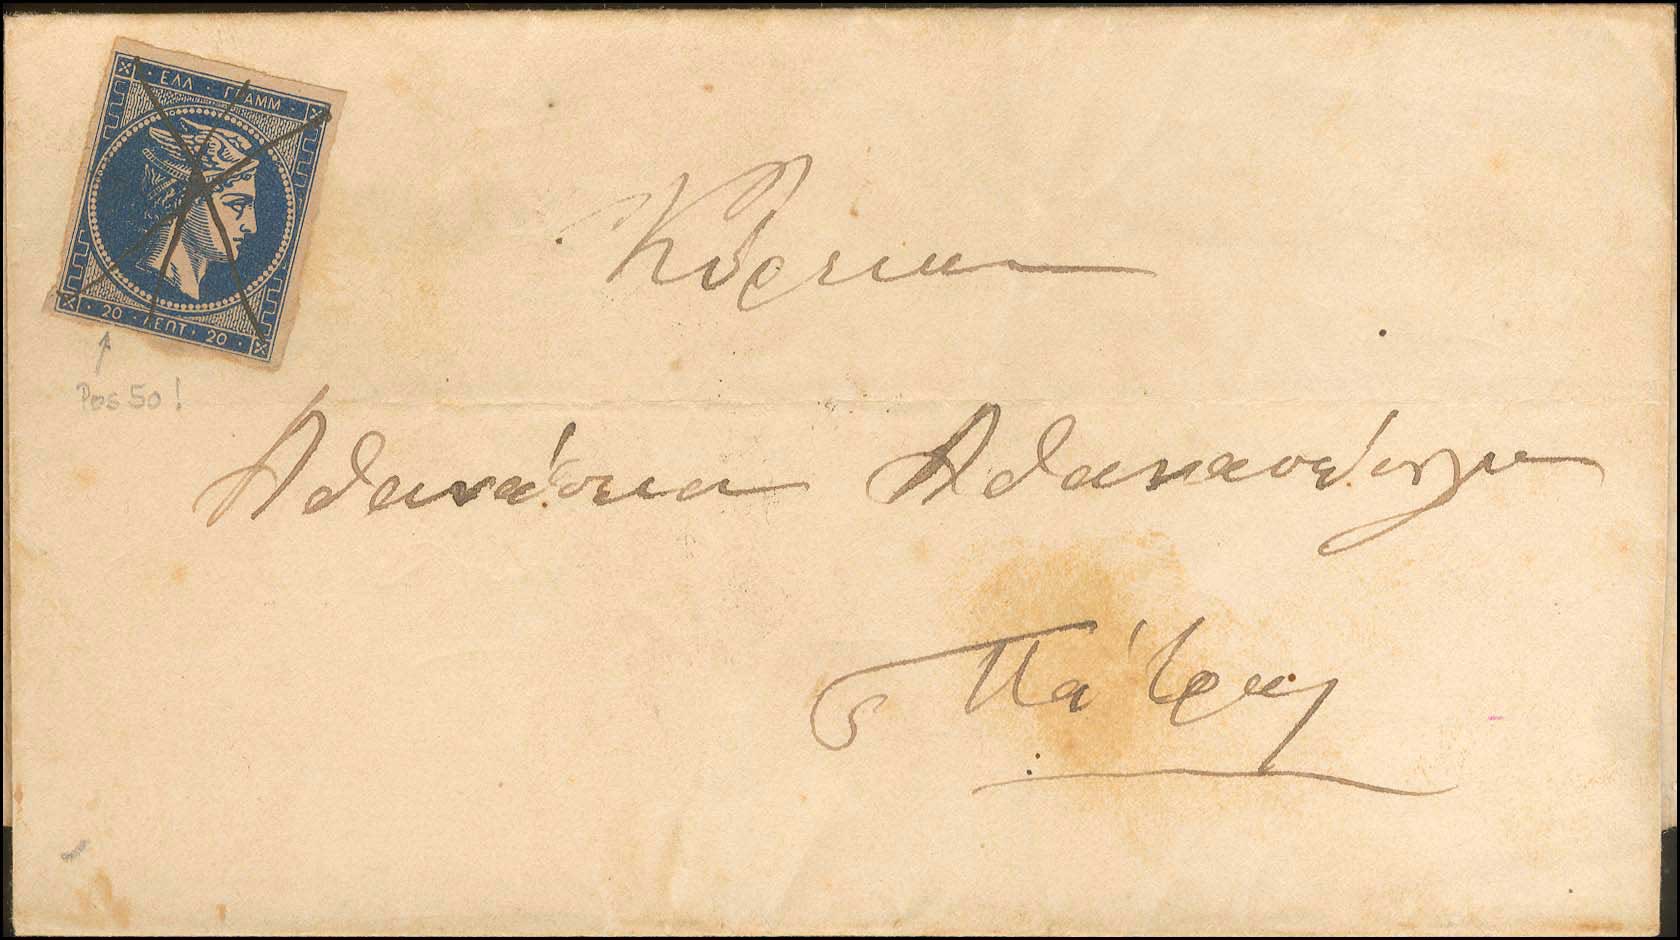 ΕΛΛ · ΓΡΑΜΜ
20 · ΛΕΠΤ · 20
Pos 50!
Κύριον
Αθανάσιον Αθανασ
Πάτρας